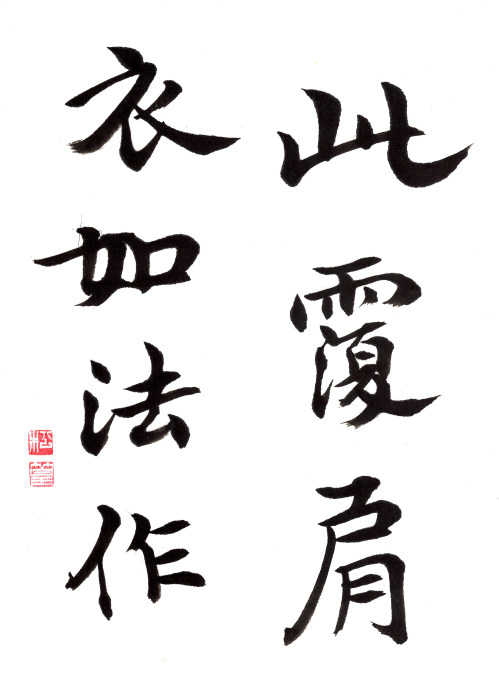 此覆肩
衣如法作